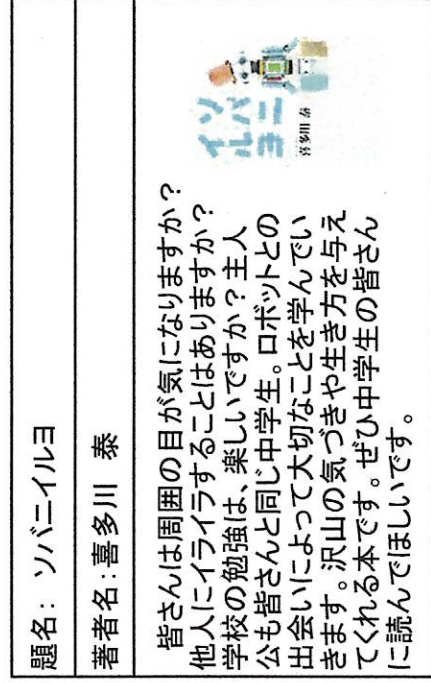 題名: ソバニイルヨ
著者名:喜多川 泰
皆さんは周囲の目が気になりますか?
他人にイライラすることはありますか?
学校の勉強は、楽しいですか?主人
公も皆さんと同じ中学生。ロボットとの
出会いによって大切なことを学んでい
きます。沢山の気づきや生き方を与え
てくれる本です。ぜひ中学生の皆さん
に読んでほしいです。
ソバニ
イルヨ
喜多川 泰